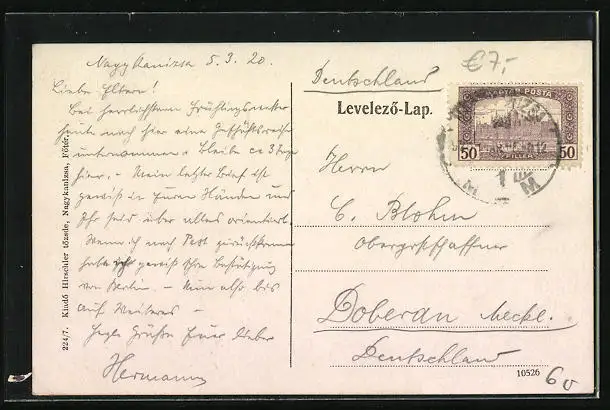 Nagykanizsa 5.3.20.
Liebe Eltern!
Bei herrlichstem Frühlingswetter
heute nach hier eine Geschäftsreise
unternommen. Bleibe ca 3 Tage
hier. – Mein letzter Brief ist
gewiß in Euren Händen und
Ihr seid über alles orientiert.
Wenn ich nach Pest zurückkomme
habe ich gewiß Ihre Bestätigung
von Berlin. – Nun also bis
auf Weiteres –
Grüße Euer lieber
Hermann
224/7. Kiadó Hirschler tőzsde, Nagykanizsa, Főtér.
€7,-
Deutschland
Levelező-Lap.
MAGYAR POSTA
50 FILLÉR 50
Herrn
C. Blohm
Doberan Meckl.
Deutschland
10526
60